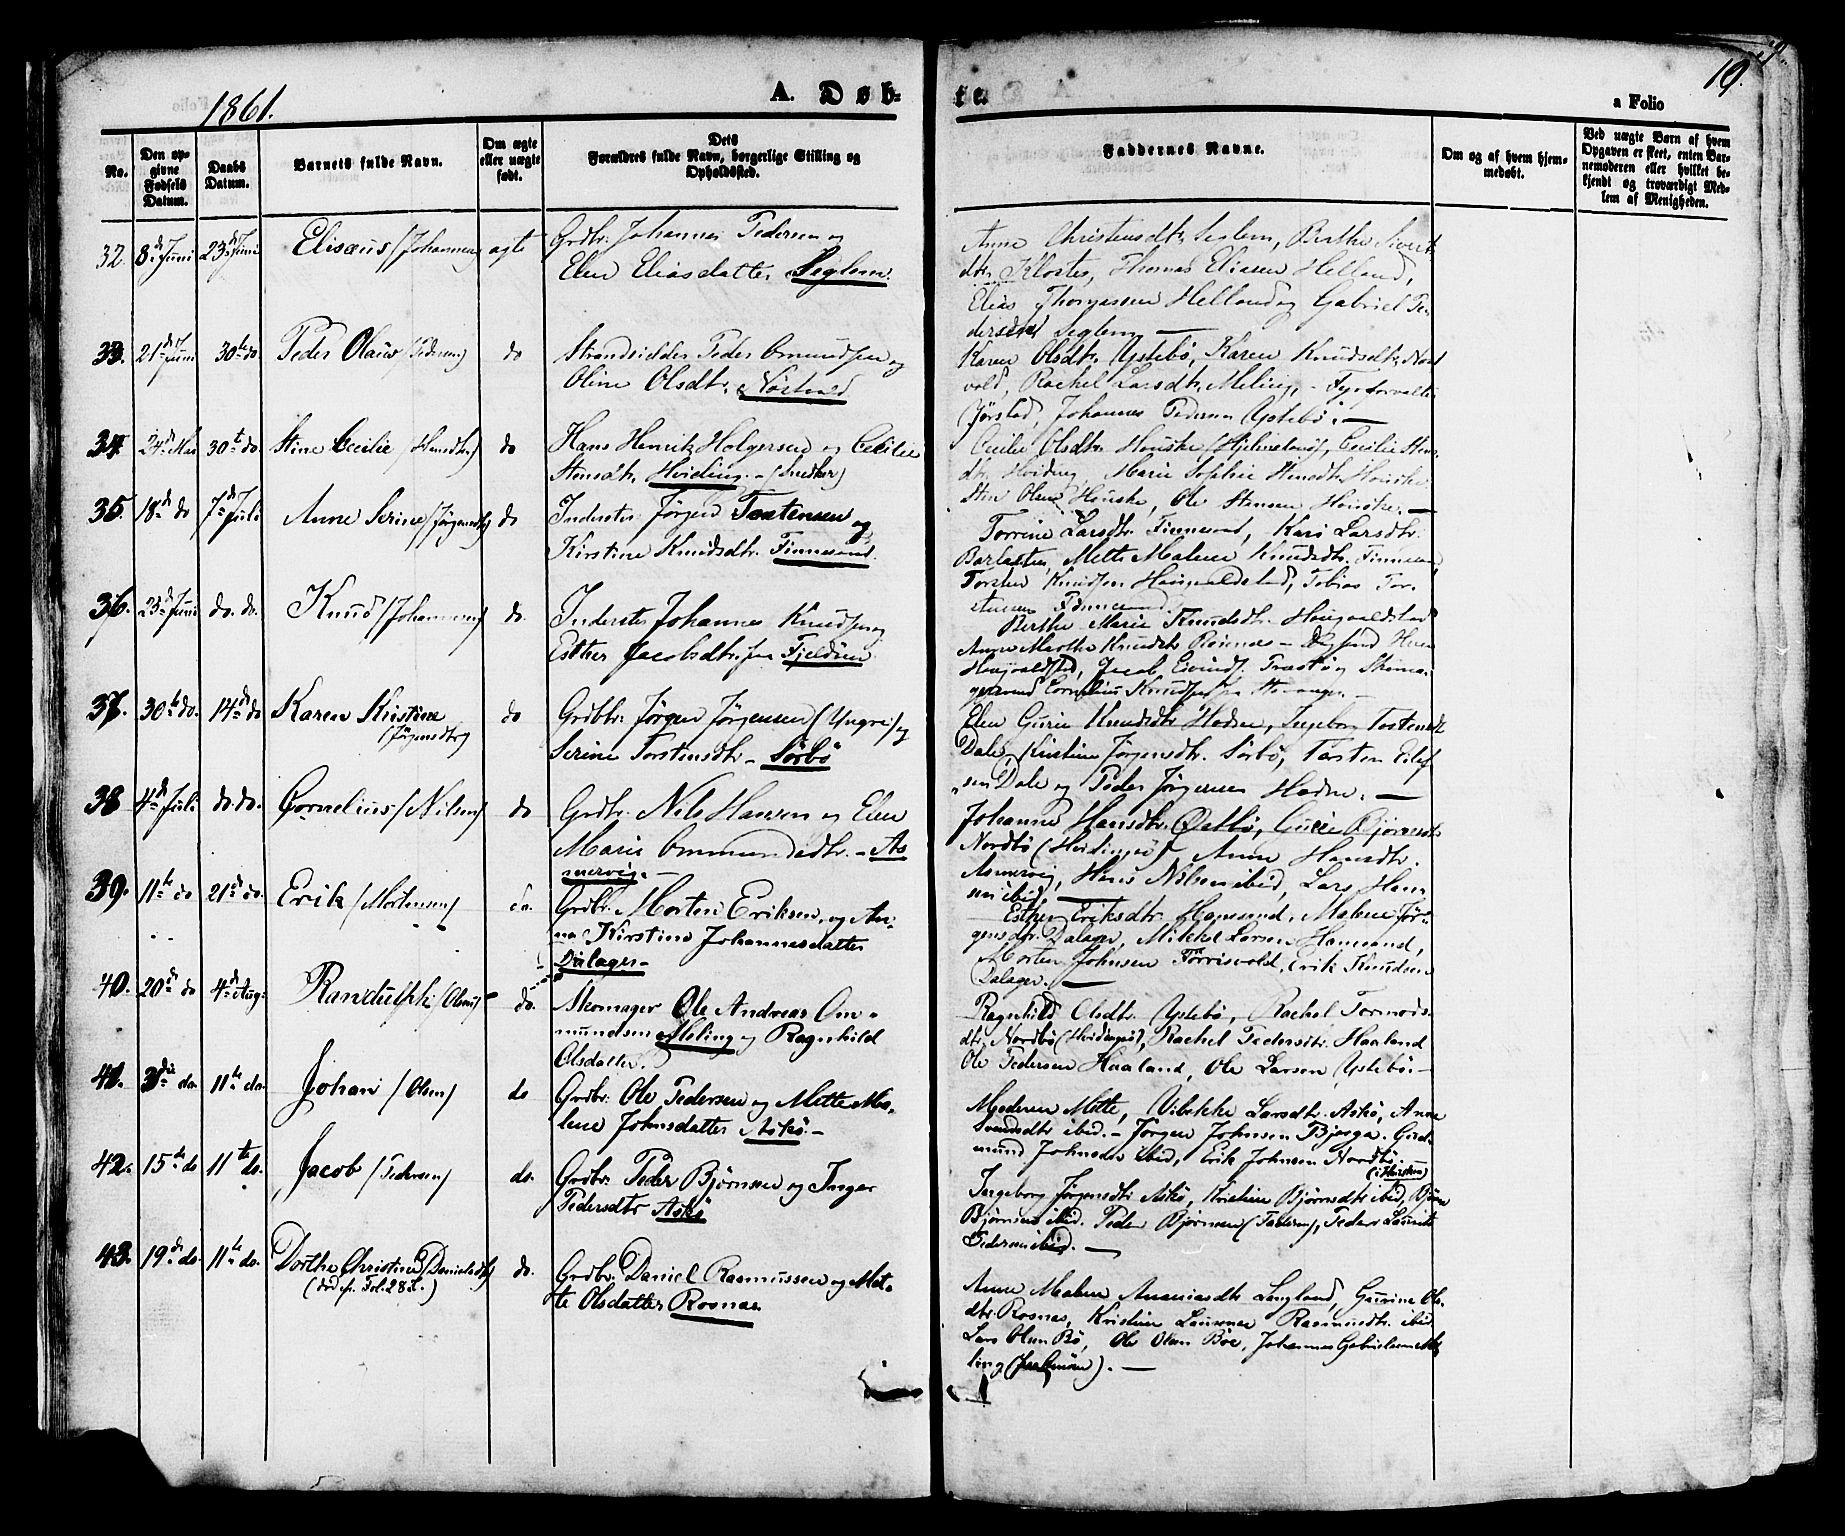 1861.
A. Døb-
te.
19.
a Folio
No.
Den op-
givne
Fødsels
Datum.
Daabs
Datum.
Barnets fulde Navn.
Om ægte
eller uægte
født.
Dets
Forældres fulde Navn, borgerlige Stilling og
Opholdssted.
Faddernes Navne.
Om og af hvem hjem-
medøbt.
Ved uægte Barn af hvem
Opgaven er skeet, enten Bar-
nemoderen eller hvilket be-
kjendt og troværdigt Med-
lem af Menigheden.
32. 8de Juni 23de Juni Elisæus (Johannesen) ægte Grdbr. Johannes Pedersen og
Elen Eliasdatter Seglem.
Anne Christensdtr. Seglem, Berthe Sivert
dtr. Kloster, Thomas Eliasen Helland,
Elias Thomassen Helland og Gabriel Pe-
dersen Seglem —
33. 21de Juni 30te do Peder Olaus (Pedersen) do Strandsidder Peder Omundsen og
Oline Olsdtr. Nøstvold
Karen Olsdtr. Ystebö, Karen Knudsdtr. Nøst
vold, Rachel Larsdtr. Meling, - Fyrforvalter
Jörstad, Johannes Pedersen Ystebö. —
34. 24de Mai 30te do Stine Cecilie (Hansdtr) do Hans Henrik Holgersen og Cecilie
Stensdtr. Hviding. - (Snedker)
Cecilie Olsdtr. Houske (Hjelmeland), Cecilie Stens
dtr. Hviding, Marie Sophie Stensdtr. Houske
Sten Olsen Houske, Ole Stensen Houske. —
35. 18de do 7de Juli Anne Serine (Jörgensdtr) do Inderster Jörgen Tostensen og
Kirstine Knudsdtr. Finnesand.
Torrine Larsdtr. Finnesand, Kari Larsdtr.
Mette Malene Knudsdtr. Finnesand
Torsten Knudsen Hougvaldstad, Tobias Tor-
stensen Finnesand.
36. 23de Juni do. do. Knud (Johannesen) do. Inderster Johannes Knudsen og
Esther Jacobsdtr. Fjeldöen.
Berthe Marie Knudsdtr. Hougvaldstad
Anne Marthe Knudsdtr.
Hougvaldstad, Jacob Eivinds.
Cornelius Knudsen fra Stavanger. —
37. 30te do. 14de do Karen Kristine
(Jörgensdtr) do Grdbr. Jörgen Jörgensen (Yngre) og
Serine Torstensdtr. - Sörbö
Elen Gurie Knudsdtr. Hodne, Ingebor Tostensdtr
Dale, Kristine Jörgensdtr. Sörbö, Torsten Eilef
sen Dale og Peder Jörgensen Hodne. —
38 4de Juli do do. Cornelius (Nilsen) do Grdbr. Nils Hansen og Elen
Marie Ommundsdtr. - As
mervig. -
Johanne Hansdtr. Østbö, Gurie Björnsdtr
Nordbö (Hvidingsö) Anne Hansdtr.
Asmervig, Hans Nilsen ibid, Lars Han
sen ibid. —
39. 11te do 21de do. Erik (Mortensen) do. Grdbr. Morten Eriksen, og An-
na Kirstine Johannesdatter
Dalager -
Esther Eriksdtr. Hanasand, Malene Jör-
gensdtr. Dalager, Mikkel Larsen Hanasand,
Morten Johnsen Törrisvold, Erik Knudsen
Dalager. —
40. 20de do 4de Aug. Randulph (Olsen) do. Skomager Ole Andreas Om-
mundsen Meling og Ragnhild
Olsdatter.
Ragnhild Olsdtr. Ystebö, Rachel Tormods-
dtr. Nordbö (Hvidingsö), Rachel Pedersdtr. Haaland
Ole Pedersen Haaland, Ole Larsen Ystebö. -
41. 3die do. 11te do. Johan (Olsen) do Grdbr. Ole Pedersen og Mette Ma-
lene Johnsdatter Askö. -
Moderen Mette, Vibekke Larsdtr. Askö, Anne
Svendsdtr ibid. - Jörgen Johnsen Bjerga. Gud-
mund Johnsen ibid, Erik Johnsen Nordbö.
42. 15de do 11te do. Jacob (Pedersen) do. Grdbr. Peder Björnsen og Inger
Pedersdtr Askö
Ingeborg Jörgensdtr Askö, Kristine Björnsdtr ibid, Björn
Björnsen ibid. Peder Björnsen (Faderen), Peder Laurits
Pedersen ibid. —
43. 19de do. 11te do. Dorthe Christine (Danielsdtr)
(död cfr. Fol. 28 L.) do. Grdbr. Daniel Rasmussen og Met-
te Olsdatter Rosnæs
Anne Malene Ananiasdtr Langland, Gurine Ols-
dtr. Rosnæs, Kristine Laurense Rasmusdtr. ibid.
Lars Olsen Bö, Ole Olsen Böe, Johannes Gabrielsen Me-
ling